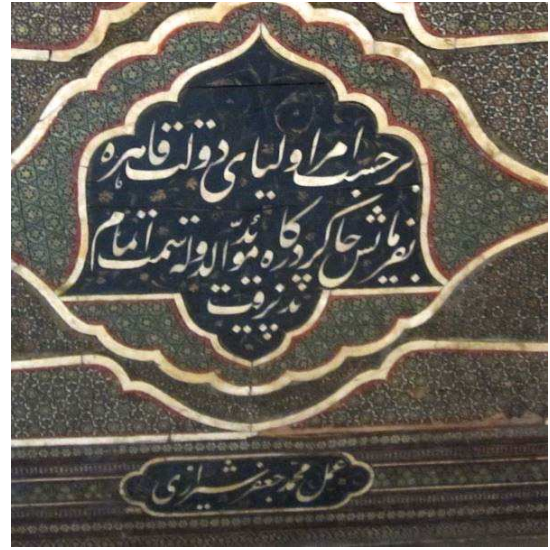 برحسب امر اولیای دولت قاهره
بفرمایش چاکر درگاه مؤیّدالدوله سمت اتمام
پذیرفت
عمل محمد جعفر شیرازی